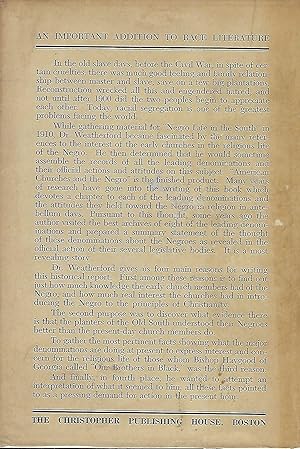 AN IMPORTANT ADDITION TO RACE LITERATURE
In the old slave days, before the Civil War, in spite of cer-
tain cruelties, there was much good feeling and family relation-
ship between master and slave, save on a few big plantations.
Reconstruction wrecked all this and engendered hatred, and
not until after 1900 did the two peoples begin to appreciate
each other. Today racial segregation is one of the greatest
problems facing the world.
While gathering material for "Negro Life in the South" in
1910, Dr. Weatherford became fascinated by the many refer-
ences to the interest of the early churches in the religious life
of the Negro. He then determined that he would sometime
assemble the records of all the leading denominations and
their official actions and attitudes on this subject. "American
Churches and the Negro" is the finished product. Many years
of research have gone into the writing of this book which
devotes a chapter to each of the leading denominations and
the attitudes they held toward the Negro and religion in ante-
bellum days. Pursuant to this thought, some years ago the
author visited the best archives of eight of the leading denomi-
nations and prepared a summary statement of the thought
of these denominations about the Negroes as revealed in the
official action of their several legislative bodies. It is a most
revealing story.
Dr. Weatherford gives us four main reasons for writing
this historical report. First among these reasons: to find out
just how much knowledge the early church members had of the
Negro, and how much real interest the churches had in intro-
ducing the Negro to the principles of Christianity.
The second purpose was to discover what evidence there
is that the planters of the Old South understood their Negroes
better than the present day church members do.
To gather the most pertinent facts showing what the major
denominations are doing at present to express interest and con-
cern for the religious life of those whom Bishop Haygood of
Georgia called "Our Brothers in Black" was the third reason.
And finally, in fourth place, he wanted to attempt an
interpretation of what it seemed to him, all these facts pointed
to as a pressing demand for action in the present hour.
THE CHRISTOPHER PUBLISHING HOUSE, BOSTON